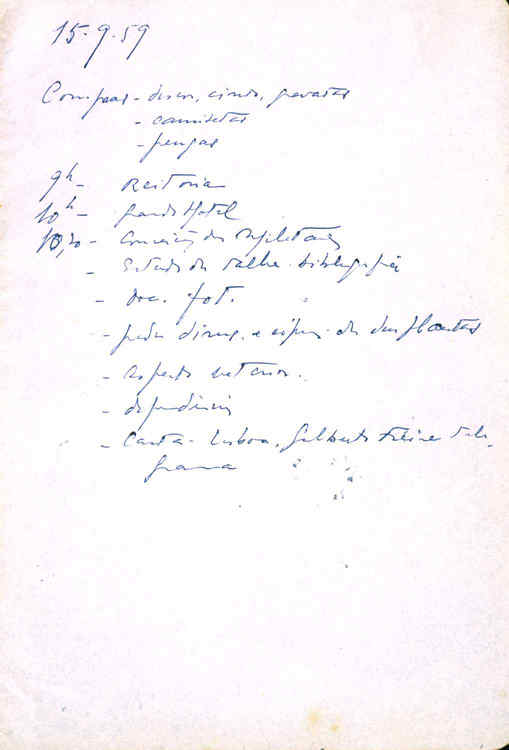 15-9-59
Compras - discos, cinto, gravatas
- camisetas
- pengas
9h - Reitoria
10h - Grande Hotel
10,30 - Conceição dos
- Estudo da talha - bibliografia
- Doc. fot.
- pedir diaps. e cópias das plantas
- Aspecto exterior.
- dependências
- Carta - Lisboa, Gilberto Freire tele
grama